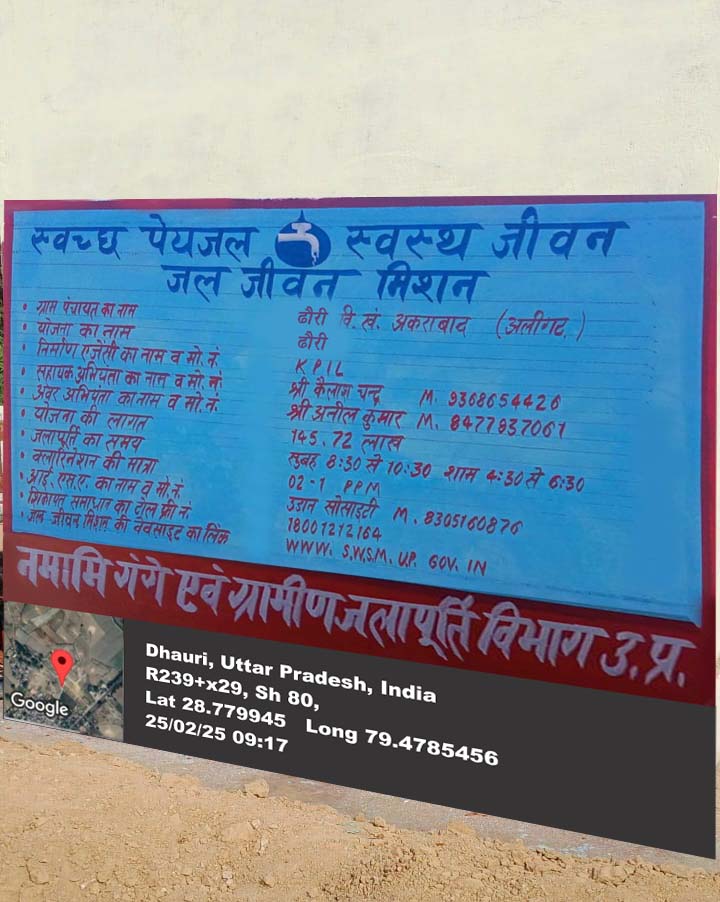 स्वच्छ पेयजल स्वस्थ जीवन
जल जीवन मिशन
• ग्राम पंचायत का नाम ढौरी वि. खं. अकराबाद (अलीगढ़)
• योजना का नाम ढौरी
• निर्माण एजेंसी का नाम व मो. नं. KPIL
• सहायक अभियंता का नाम व मो. नं. श्री कैलाश चन्द्र M. 9368654426
• अवर अभियंता का नाम व मो. नं. श्री अनील कुमार M. 8477937061
• योजना की लागत 145.72 लाख
• जलापूर्ति का समय सुबह 8:30 से 10:30 शाम 4:30 से 6:30
• क्लोरिनेशन की मात्रा 02-1 PPM
• आई. एस. ए. का नाम व मो. नं. उडान सोसाइटी M. 8305160876
• शिकायत समाधान का टोल फ्री नं. 18001212164
• जल जीवन मिशन की वेबसाइट का लिंक WWW. S.W.S.M. U.P. GOV. IN
नमामि गंगे एवं ग्रामीण जलापूर्ति विभाग उ.प्र.
Google
Dhauri, Uttar Pradesh, India
R239+x29, Sh 80,
Lat 28.779945 Long 79.4785456
25/02/25 09:17